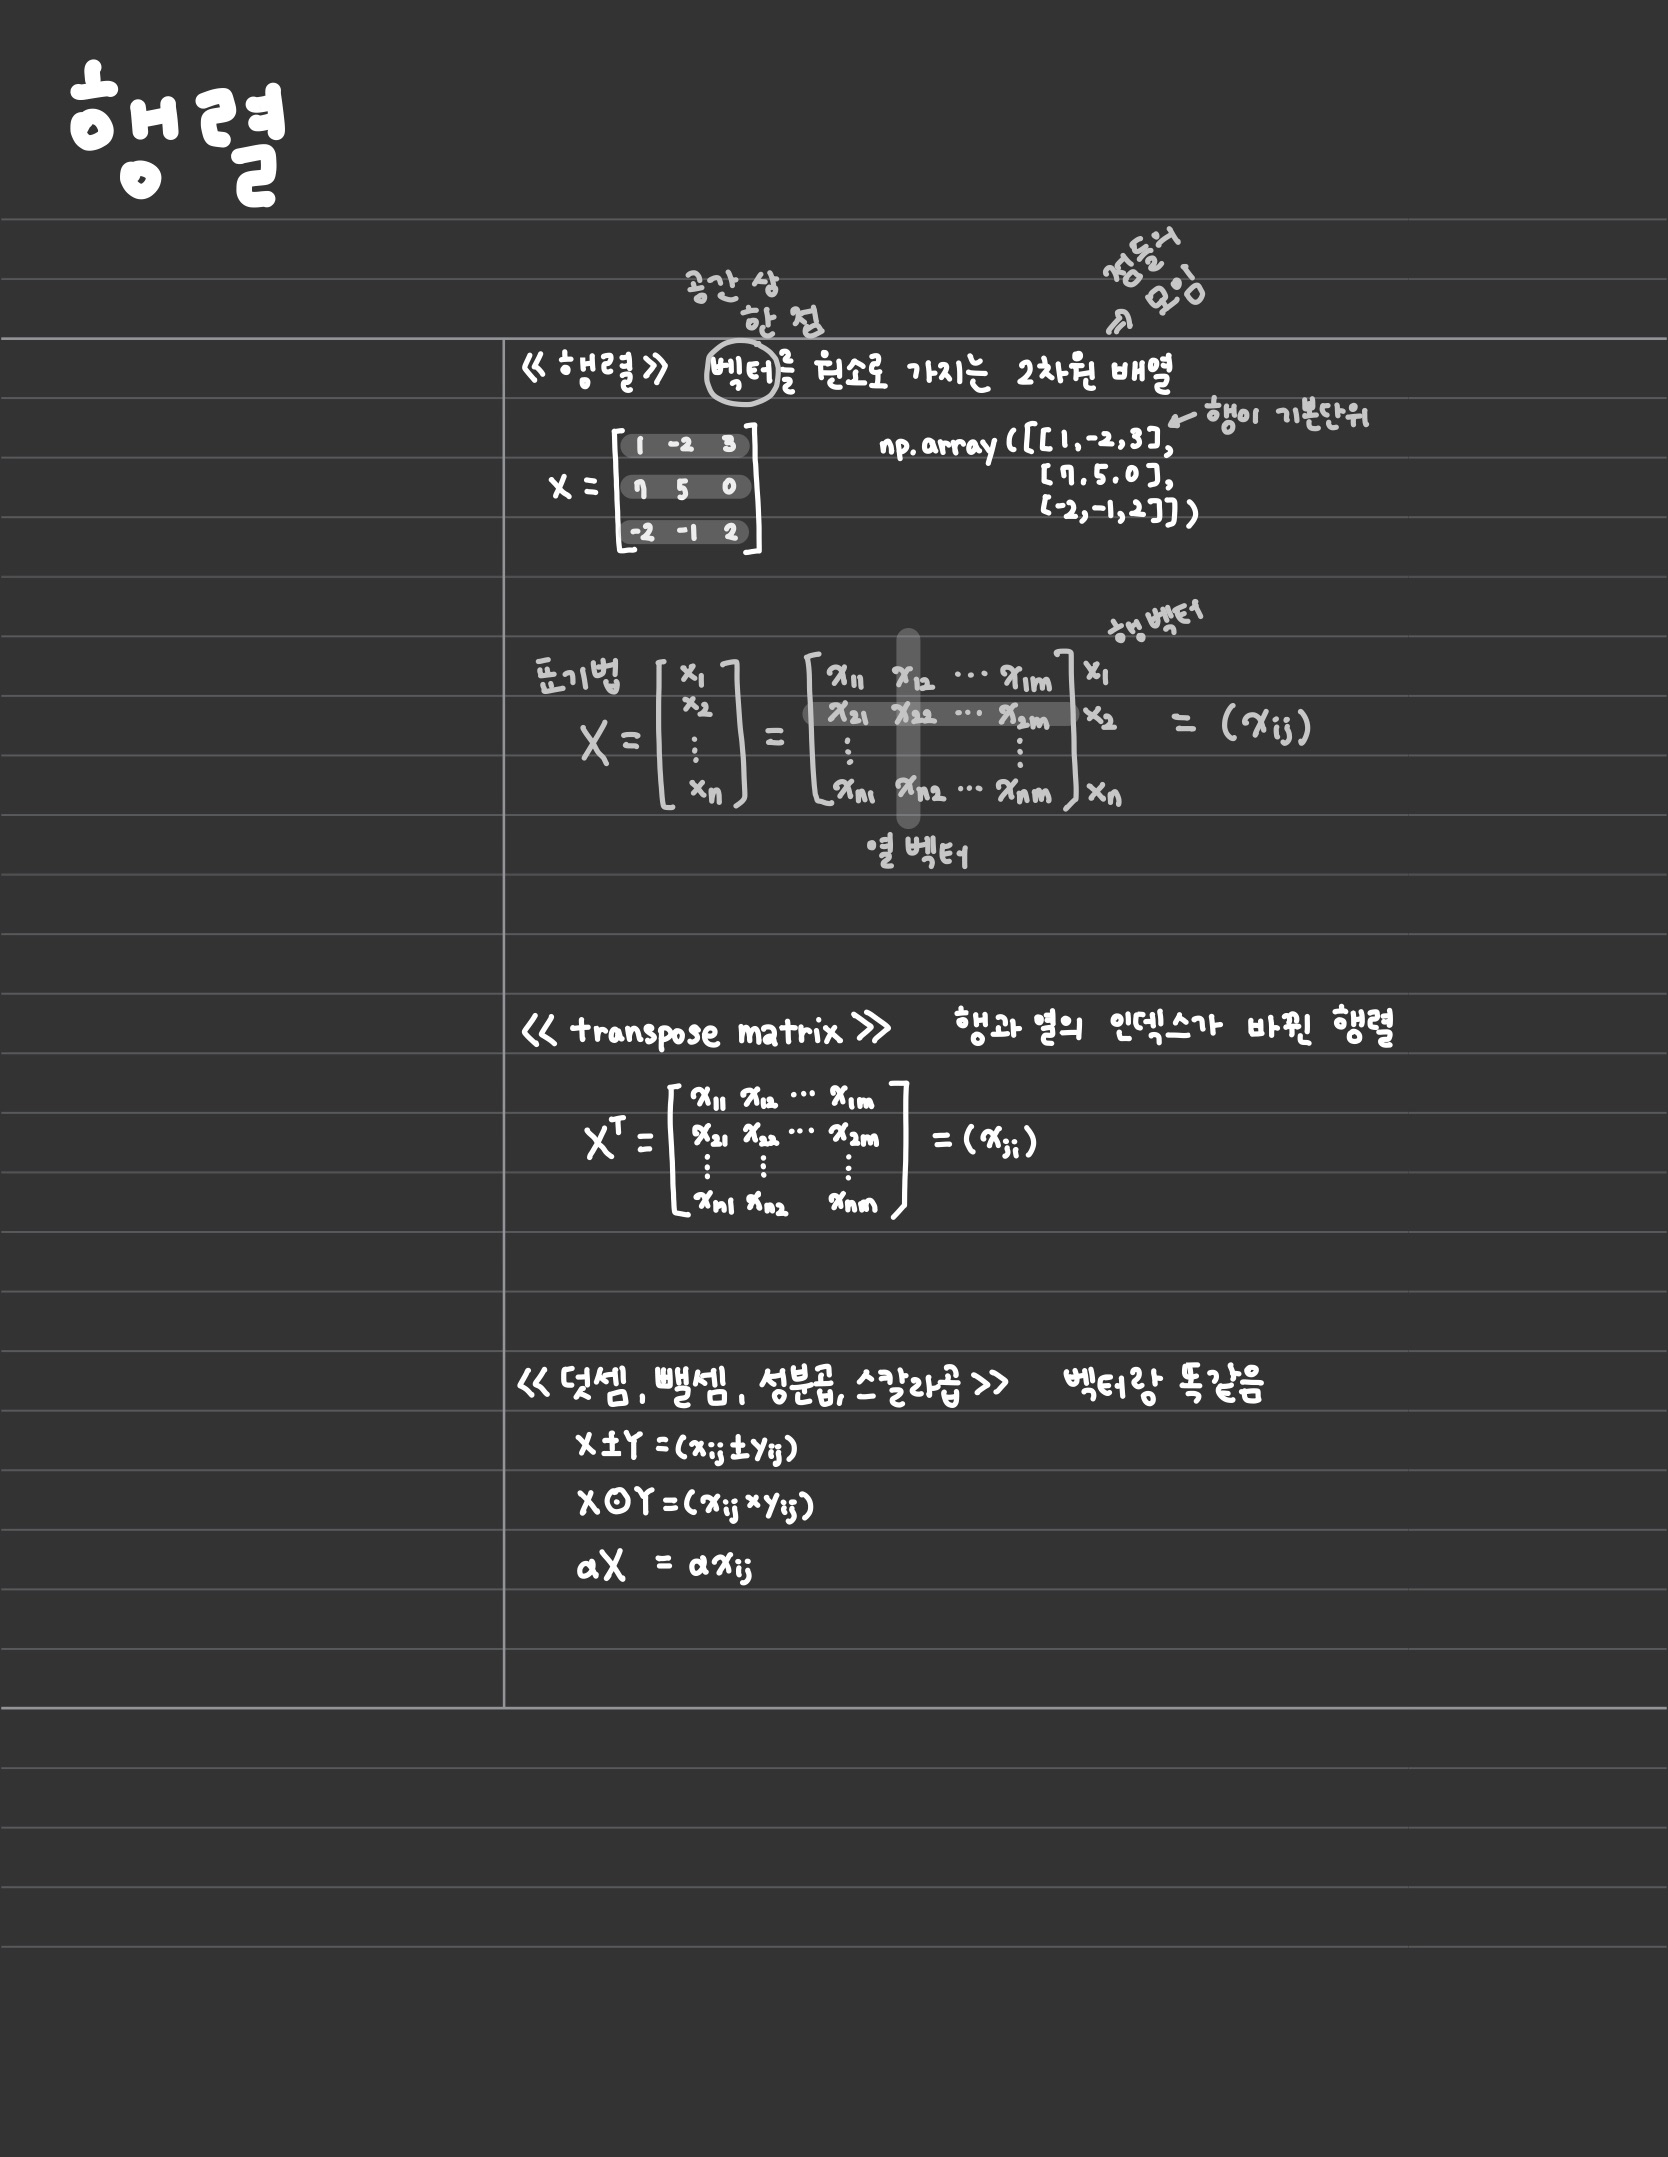 행렬
공간 상
한 점
점들의
모임
⇒
≪행렬≫ 벡터를 원소로 가지는 2차원 배열
← 행이 기본단위
X = [1 -2 3
7 5 0
-2 -1 2]
np.array([[1,-2,3],
[7,5,0],
[-2,-1,2]])
행벡터
표기법
X = [x₁ x₂ ⋮ xₙ] = [x₁₁ x₁₂ ⋯ x₁ₘ
x₂₁ x₂₂ ⋯ x₂ₘ
⋮ ⋮
xₙ₁ xₙ₂ ⋯ xₙₘ] x₁ x₂ xₙ = (xᵢⱼ)
열벡터
≪transpose matrix≫ 행과 열의 인덱스가 바뀐 행렬
Xᵀ = [x₁₁ x₁₂ ⋯ x₁ₘ
x₂₁ x₂₂ ⋯ x₂ₘ
⋮ ⋮ ⋮
xₙ₁ xₙ₂ xₙₘ] = (xⱼᵢ)
≪덧셈, 뺄셈, 성분곱, 스칼라곱≫ 벡터랑 똑같음
X±Y = (xᵢⱼ±yᵢⱼ)
X⊙Y = (xᵢⱼ×yᵢⱼ)
aX = axᵢⱼ